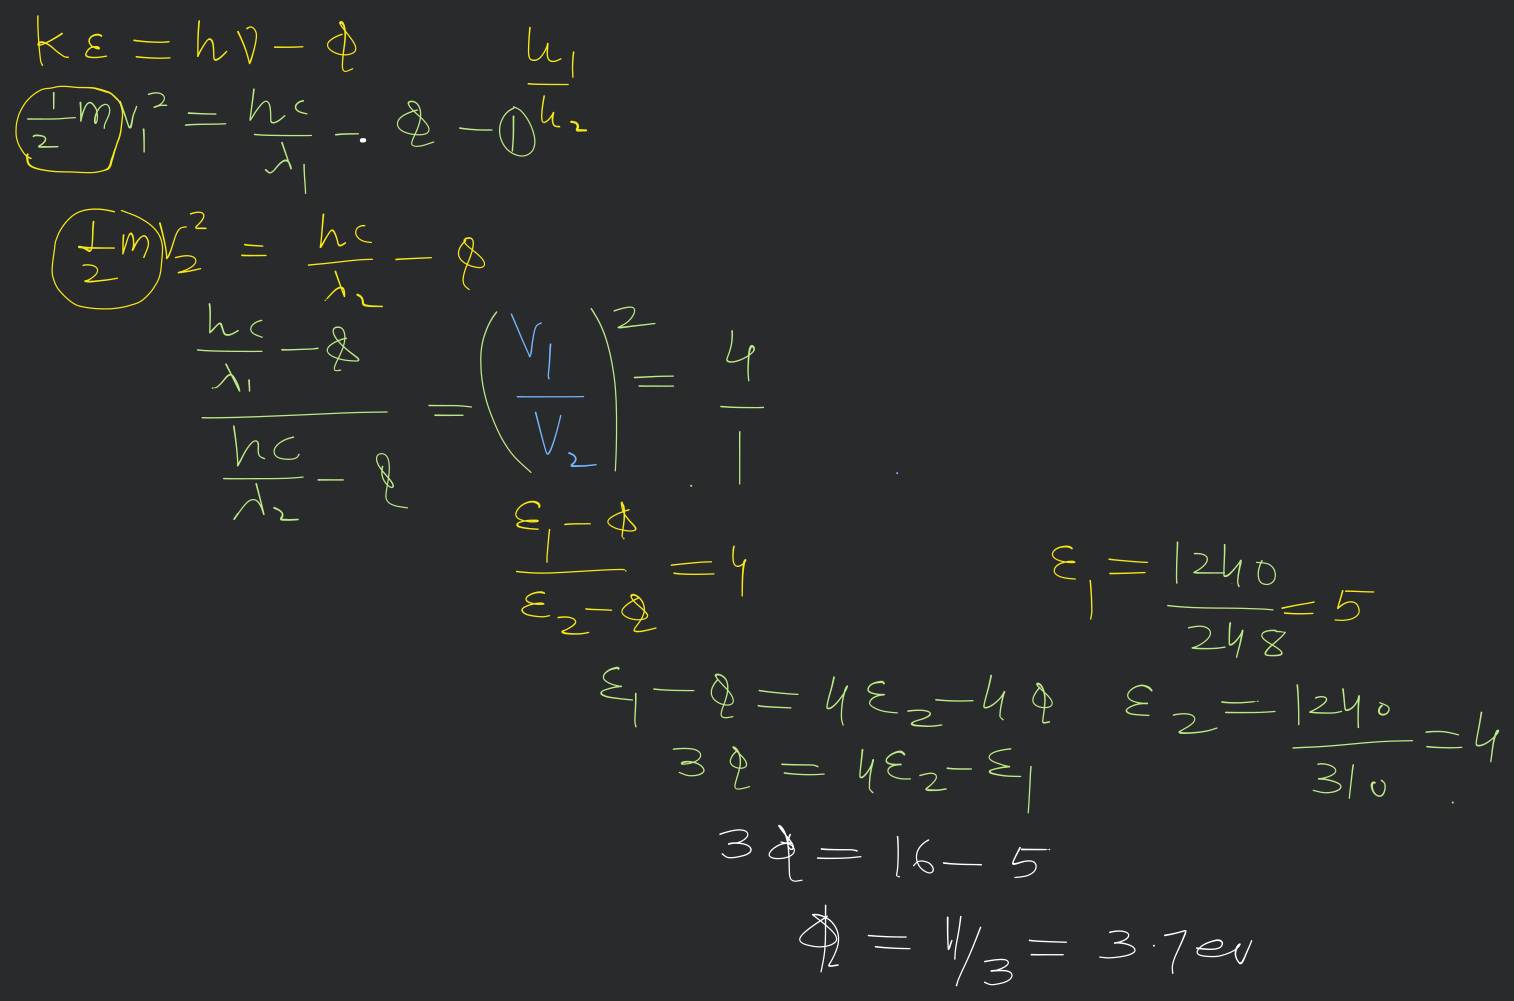 KE = hν - ϕ
u₁/u₂
½ m v₁² = hc/λ₁ - ϕ - ①
½ m v₂² = hc/λ₂ - ϕ
(hc/λ₁ - ϕ)/(hc/λ₂ - ϕ) = (V₁/V₂)² = 4/1
(ε₁ - ϕ)/(ε₂ - ϕ) = 4
ε₁ = 1240/248 = 5
ε₁ - ϕ = 4ε₂ - 4ϕ
ε₂ = 1240/310 = 4
3ϕ = 4ε₂ - ε₁
3ϕ = 16 - 5
ϕ = 11/3 = 3.7ev